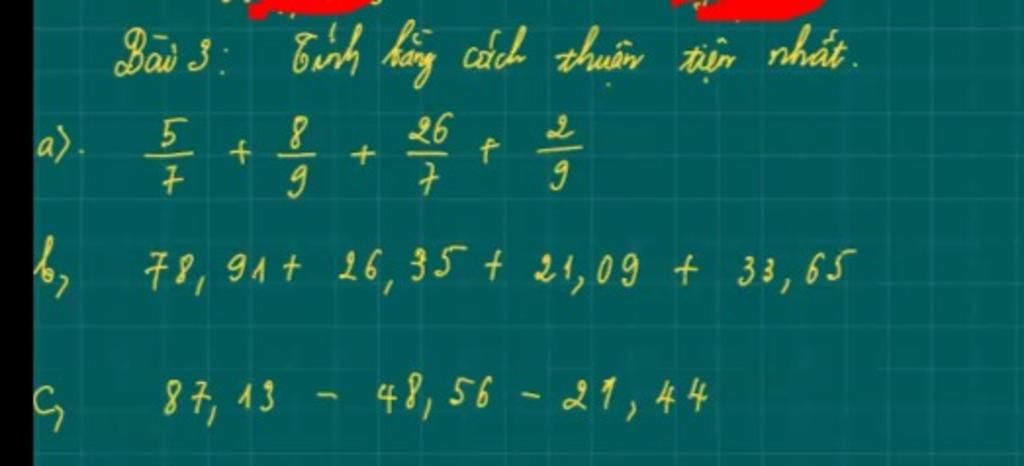 Bài 3: Tính bằng cách thuận tiện nhất.
a). 5/7 + 8/9 + 26/7 + 2/9
b, 78,91 + 26,35 + 21,09 + 33,65
c, 87,13 - 48,56 - 21,44